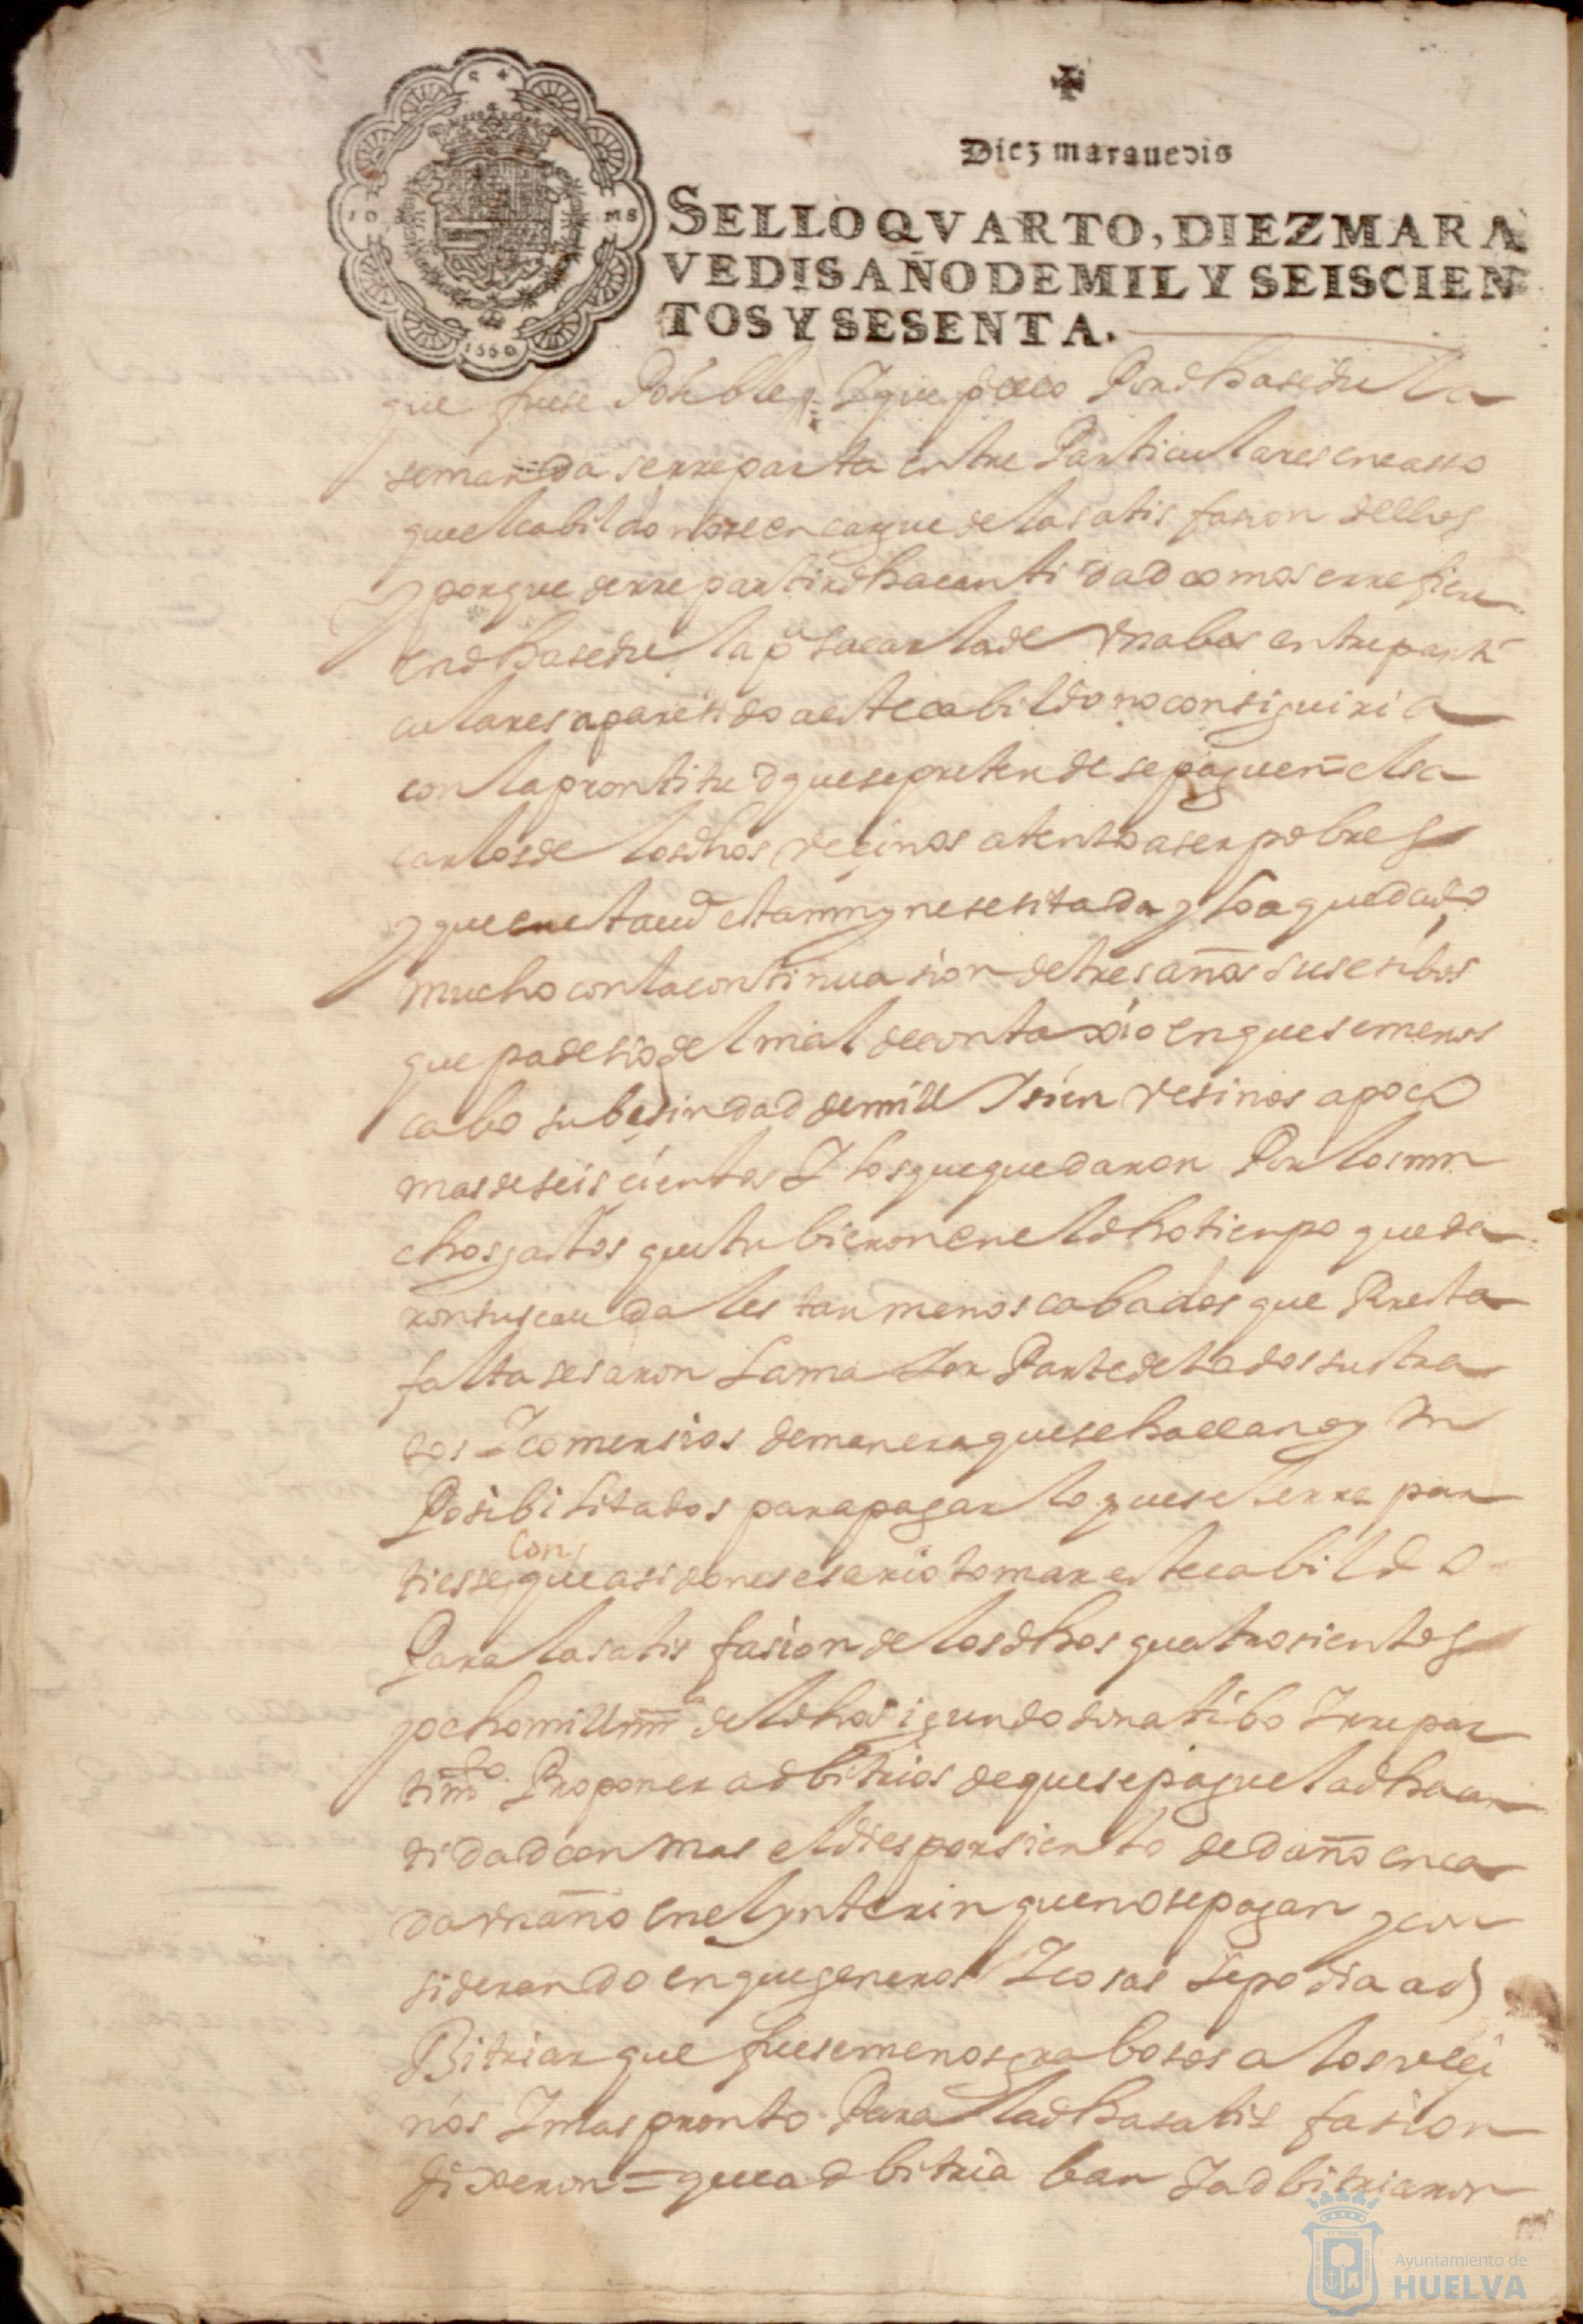 Diez maravedis
SELLO QVARTO, DIEZ MARA
VEDIS AÑO DE MIL Y SEISCIEN
TOS Y SESENTA.
10 MS
1660
que fuese Posible Y que Por dha sedu la
se manda se rreparta entre Particulares en casso
que el cabildo no se encargue de la satisfasion dellos
y porque de rrepartir dha cantidad como se rrefiere
en dha sedula pa sacarlade vnabos entre parti
culares a paresido a este cabildo no consiguiria
con la prontitud que se pretende se paguen
los dhos veçinos atento a ser pobres
y que en esta ciud esta muy nesesitada y lo a quedado
mucho con la continuasion de tres años susesibos
que padesio del mal de contaxio en que se menos
cabo su besindad de mill Y sien vesinos a poco
mas de seis çientos Y los que quedaron Por los mu
chos gastos que tubieron en el dho tienpo queda
ron sus caudales tan menoscabados que Por esta
falta sesaron La maior Parte de todos sus tra
tos Y comersios de manera que se hallan oy yn
Posibilitados para pagar lo que se les rrepar
tiesse con que a sido nesesario tomar este cabildo
Para la satisfasion de los dhos quatrosientos
y ocho mill mrs del dho sigundo donatibo Y rrepar
timto Proponer adbitrios de que se pague la dha can
tidad con mas el dies por siento de daño en ca
da vn año en el ynterin que no se pagan y con
siderando en que generos Y cosas se podia ad
Bitriar que fuese menos grabosos a los veçi
nos Y mas pronto Para la dha satisfasion
dixeron = que adbitriaban Y adbitriaron
Ayuntamiento de
HUELVA